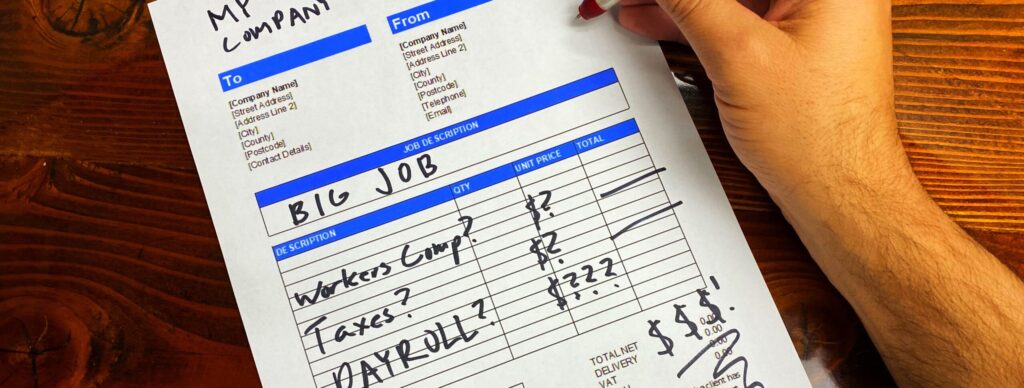 MY
COMPANY
To
[Company Name]
[Street Address]
[Address Line 2]
[City]
[County]
[Postcode]
[Contact Details]
From
[Company Name]
[Street Address]
[Address Line 2]
[City]
[County]
[Postcode]
[Telephone]
[Email]
JOB DESCRIPTION
BIG JOB
DESCRIPTION QTY UNIT PRICE TOTAL
Workers Comp? $?
Taxes? $?
PAYROLL? $???
$$$!
TOTAL NET 0.00
DELIVERY 0.00
VAT 0.00